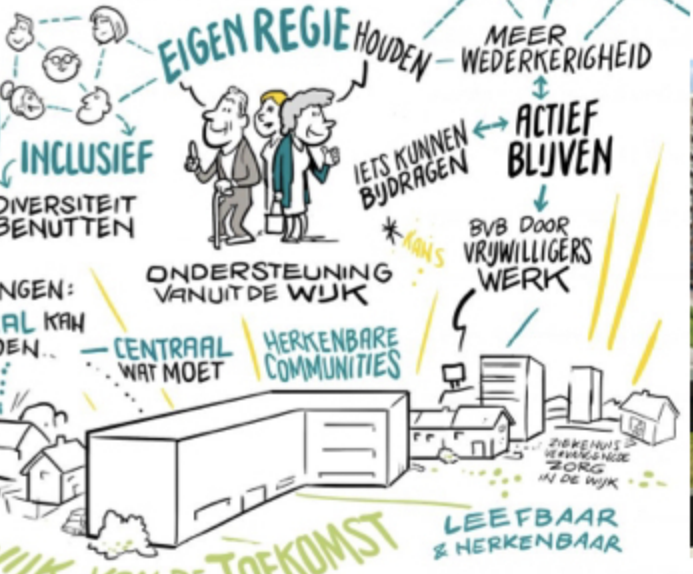 EIGEN REGIE HOUDEN
MEER
WEDERKERIGHEID
ACTIEF
BLIJVEN
IETS KUNNEN
BIJDRAGEN
INCLUSIEF
DIVERSITEIT
BENUTTEN
* KANS
BVB DOOR
VRIJWILLIGERS
WERK
ONDERSTEUNING
VANUIT DE WIJK
NGEN:
AL KAN
DEN..
CENTRAAL
WAT MOET
HERKENBARE
COMMUNITIES
ZIEKENHUIS
VERVANGENDE
ZORG
IN DE WIJK
LEEFBAAR
& HERKENBAAR
WIJK VAN DE TOEKOMST